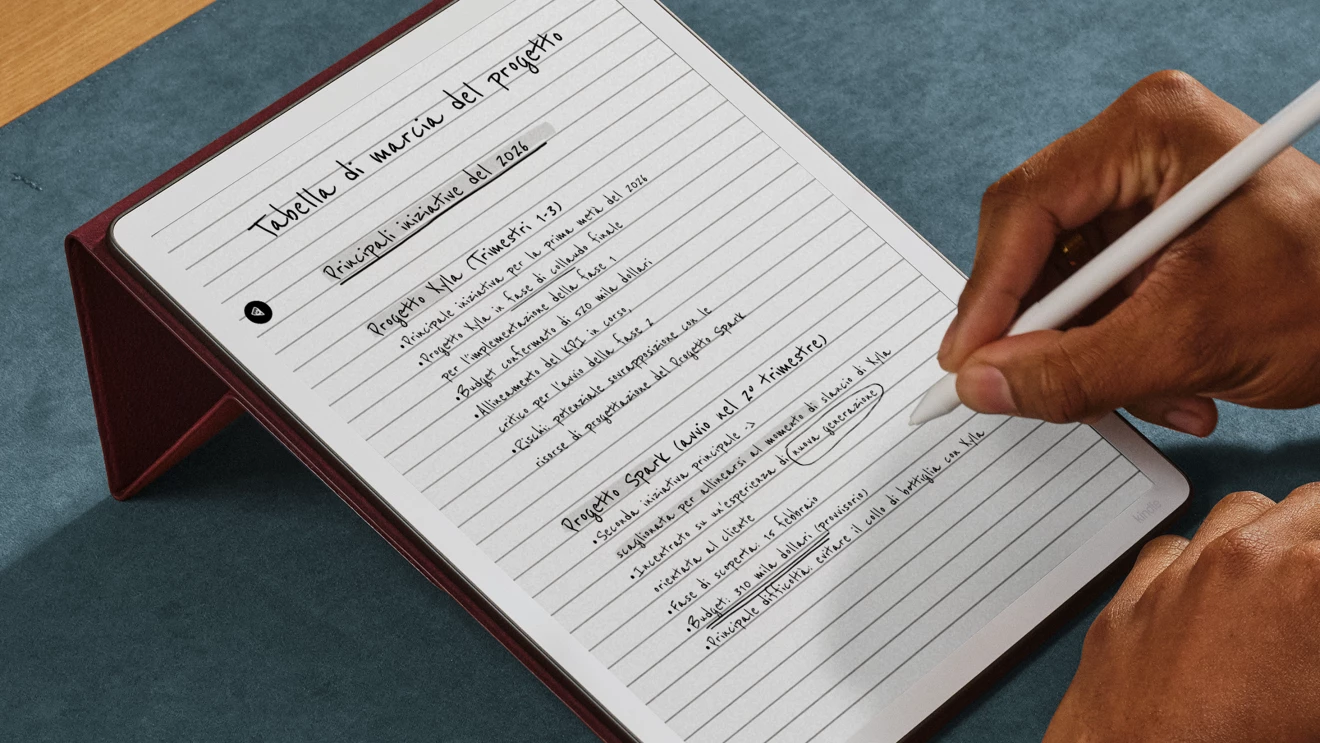 Tabella di marcia del progetto
Principali iniziative del 2026
Progetto Kyla (Trimestri 1-3)
•Principale iniziativa per la prima metà del 2026
•Progetto Kyla in fase di collaudo finale
per l'implementazione della fase 1
•Budget confermato di 520 mila dollari
•Allineamento del KPI in corso,
critico per l'avvio della fase 2
•Rischi: potenziale sovrapposizione con le
risorse di progettazione del Progetto Spark
Progetto Spark (avvio nel 2º trimestre)
•Seconda iniziativa principale ->
scaglionata per allinearsi al momento di slancio di Kyla
•Incentrato su un'esperienza di nuova generazione
orientata al cliente
•Fase di scoperta: 15 febbraio
•Budget: 310 mila dollari (provvisorio)
•Principale difficoltà: evitare il collo di bottiglia con Kyla
kindle